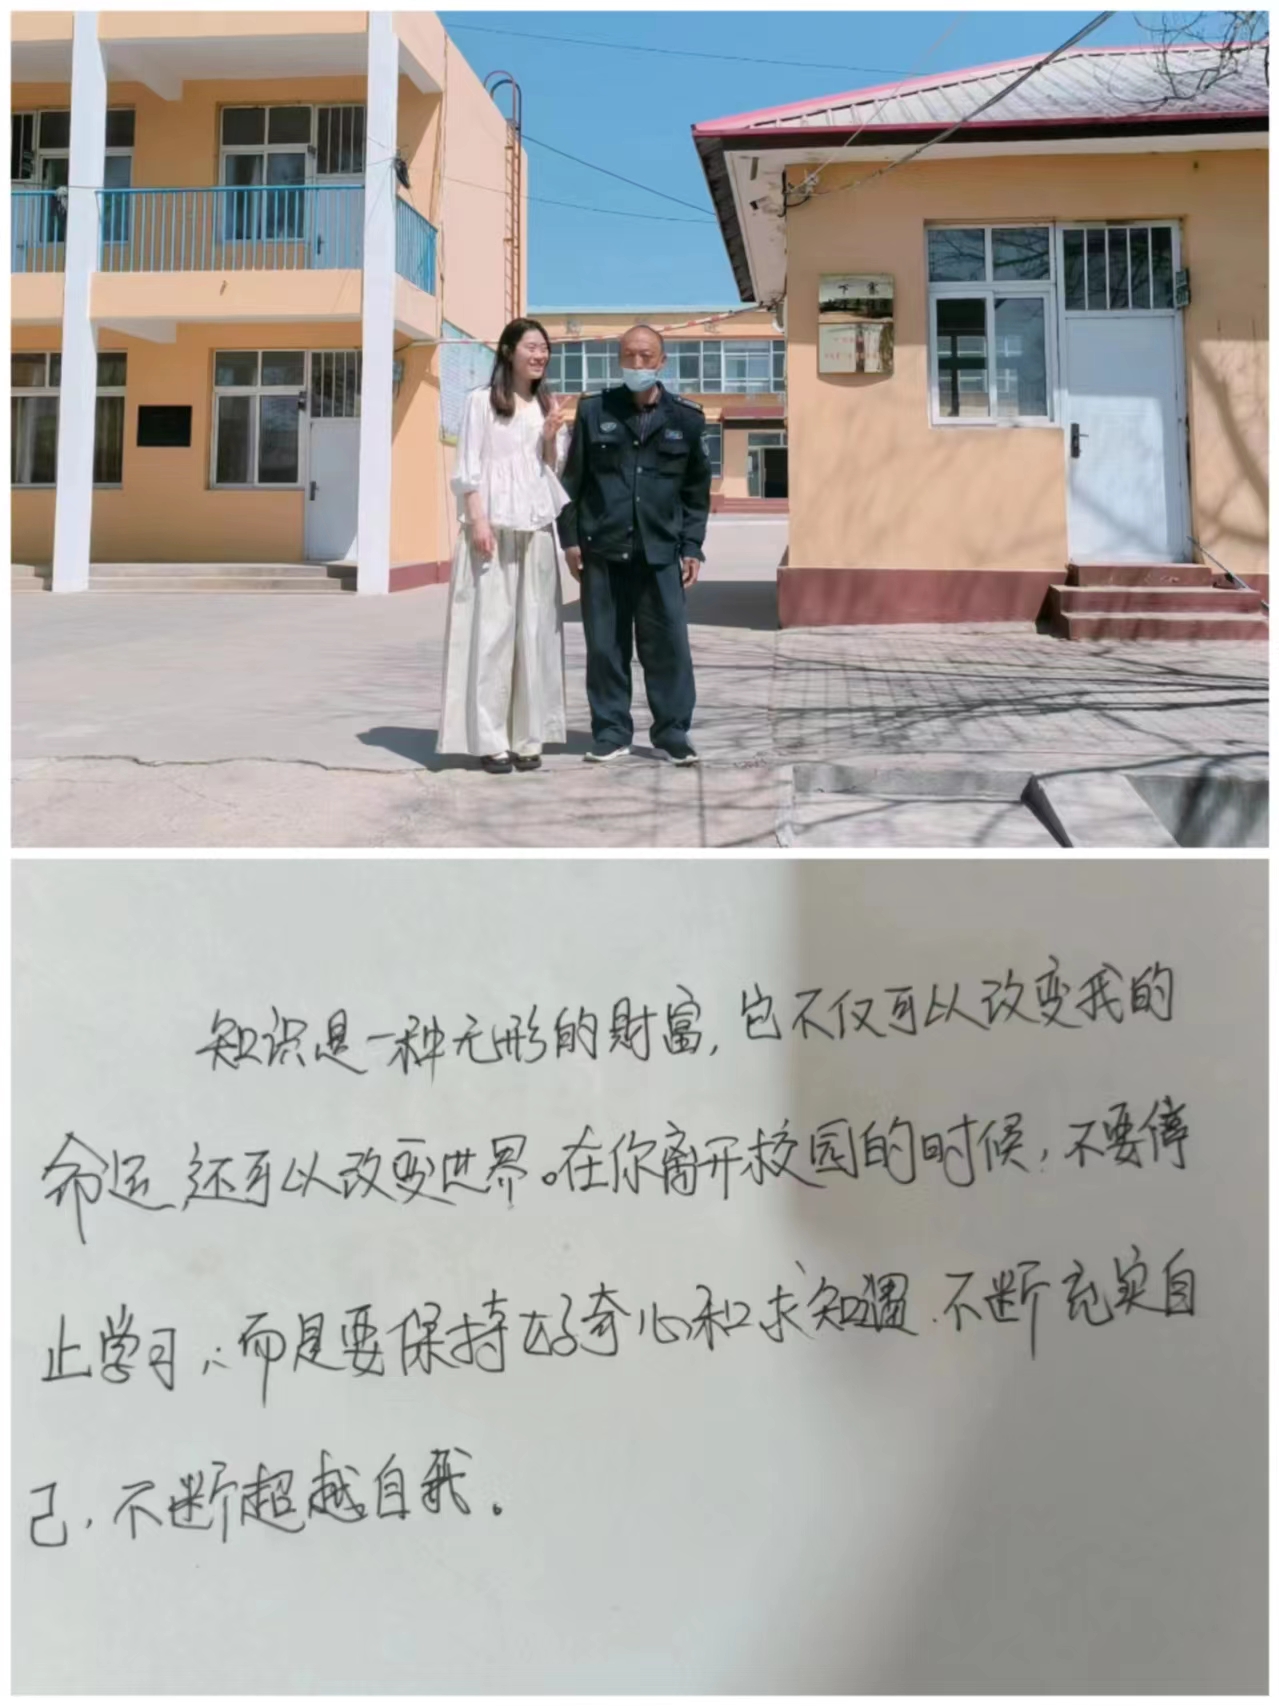 下寨
知识是一种无形的财富,它不仅可以改变我的
命运,还可以改变世界。在你离开校园的时候,不要停
止学习,而是要保持好奇心和求知遇.不断充实自
己.不断超越自我。